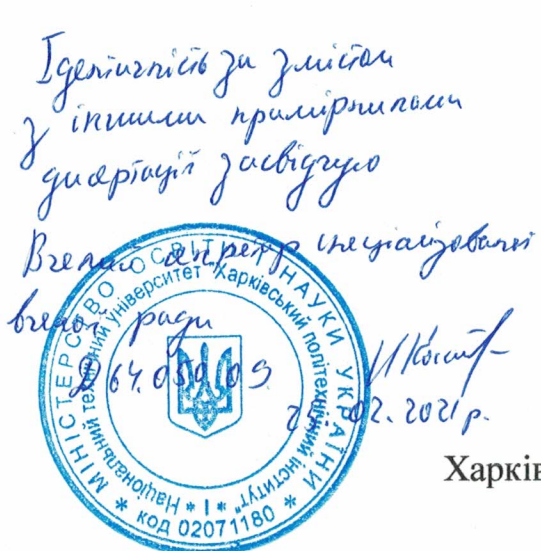 Ідентичність за змістом
з іншими примірниками
дисертації засвідчую
Вчений секретар спеціалізованої
вченої ради
Д 64.050.09
02.2021 р.
МІНІСТЕРСТВО ОСВІТИ І НАУКИ УКРАЇНИ
Національний технічний університет "Харківський політехнічний інститут"
* І *
* код 02071180 *
Харків